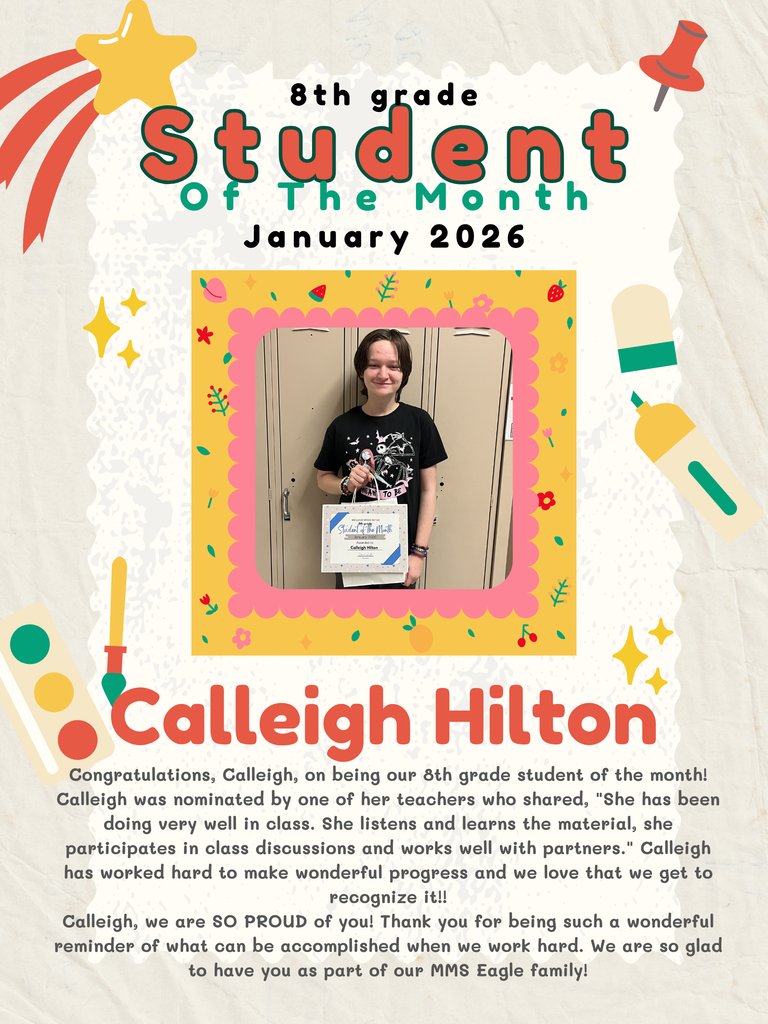 8th grade
Student
Of The Month
January 2026
TO BE
8th grade
Student of the Month
Calleigh Hilton
Calleigh Hilton
Congratulations, Calleigh, on being our 8th grade student of the month!
Calleigh was nominated by one of her teachers who shared, "She has been
doing very well in class. She listens and learns the material, she
participates in class discussions and works well with partners." Calleigh
has worked hard to make wonderful progress and we love that we get to
recognize it!!
Calleigh, we are SO PROUD of you! Thank you for being such a wonderful
reminder of what can be accomplished when we work hard. We are so glad
to have you as part of our MMS Eagle family!